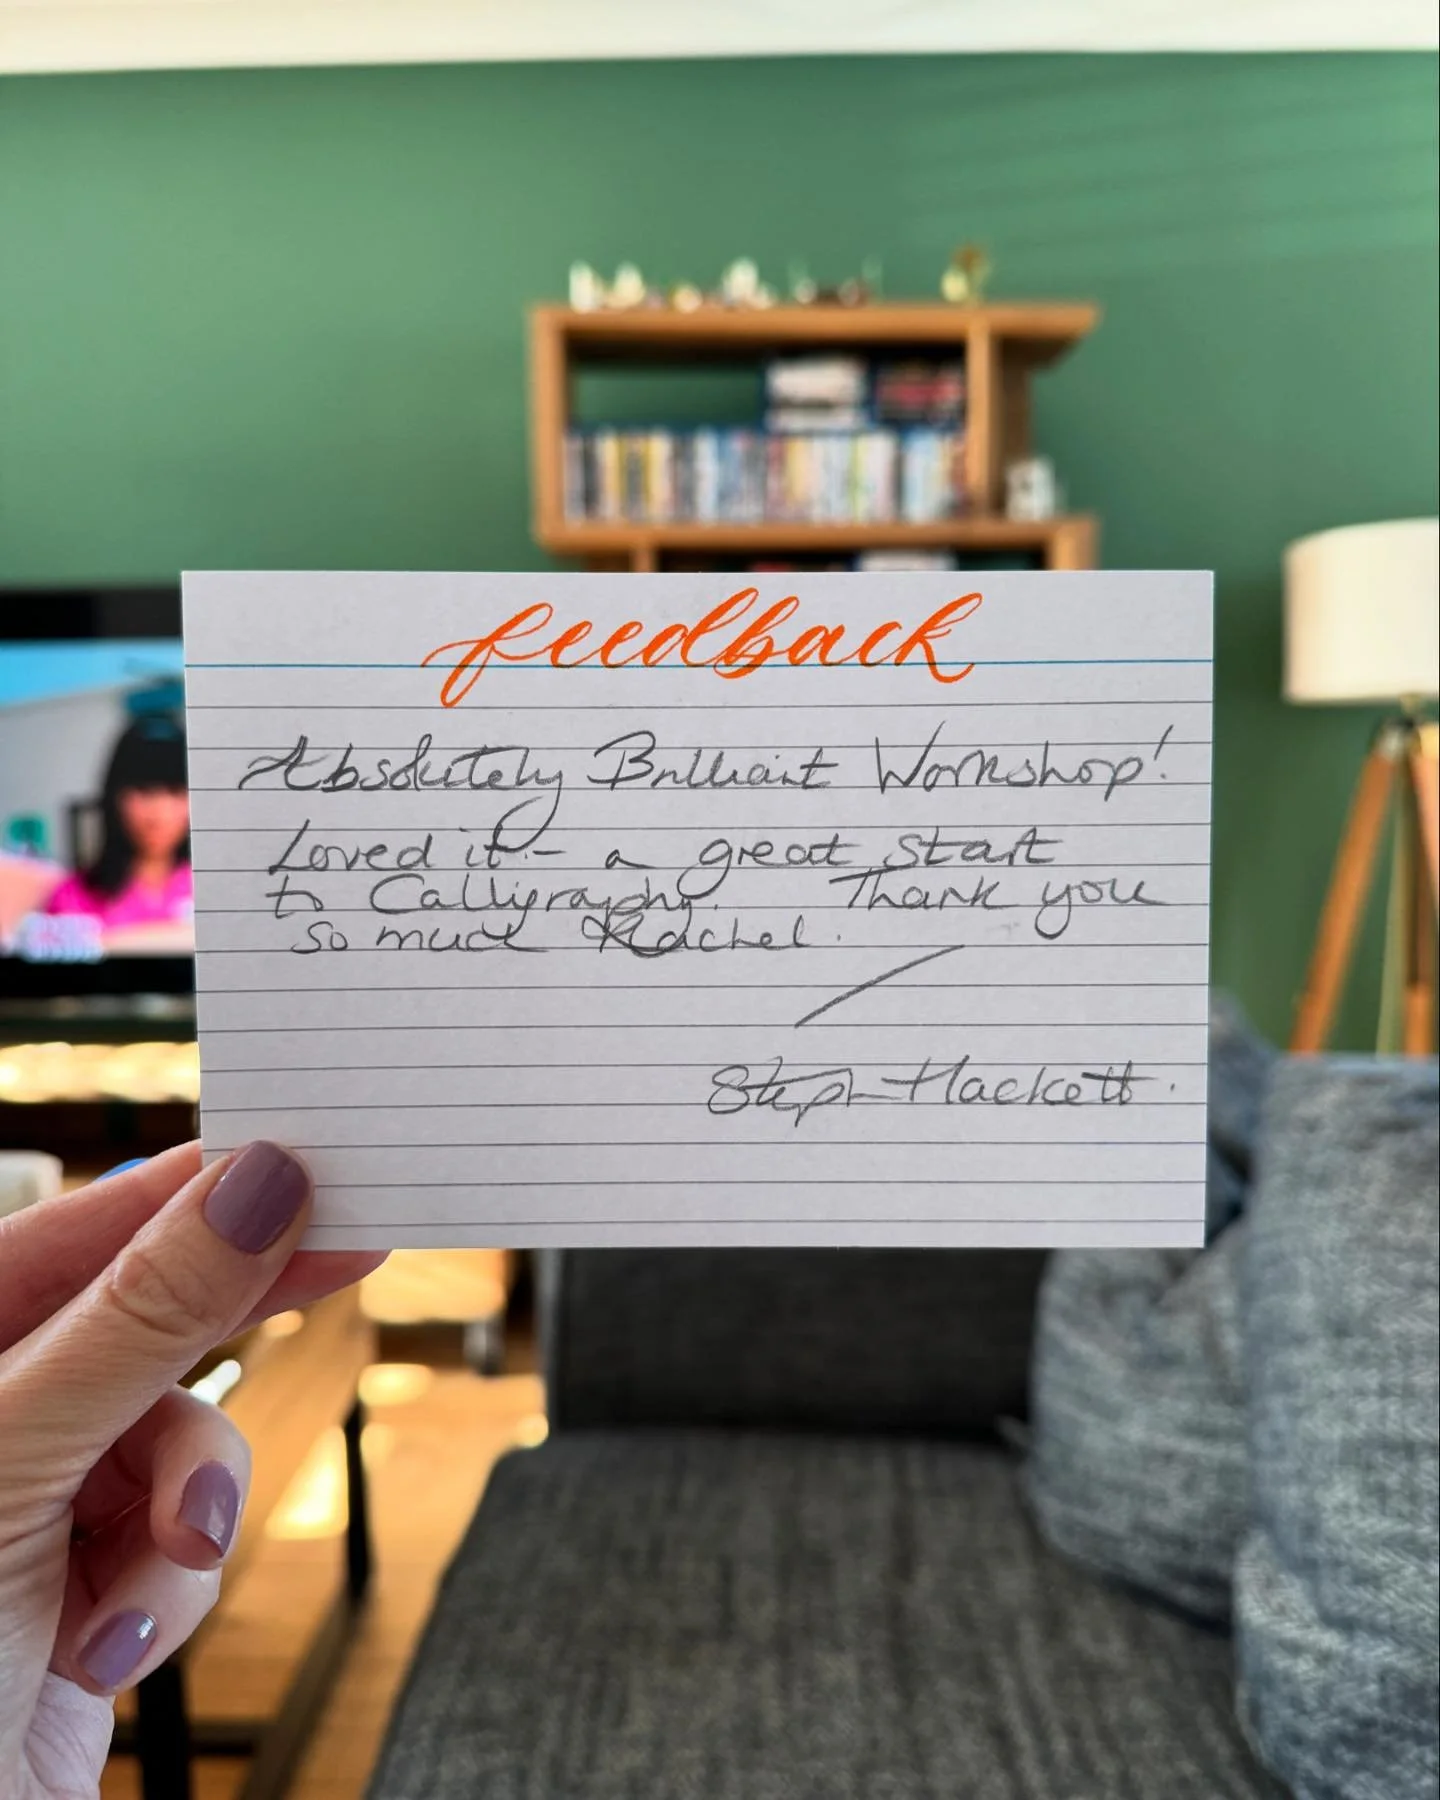 feedback
Absolutely Brilliant Workshop!
Loved it - a great start
to Calligraphy. Thank you
so much Rachel.
Steph Hackett.